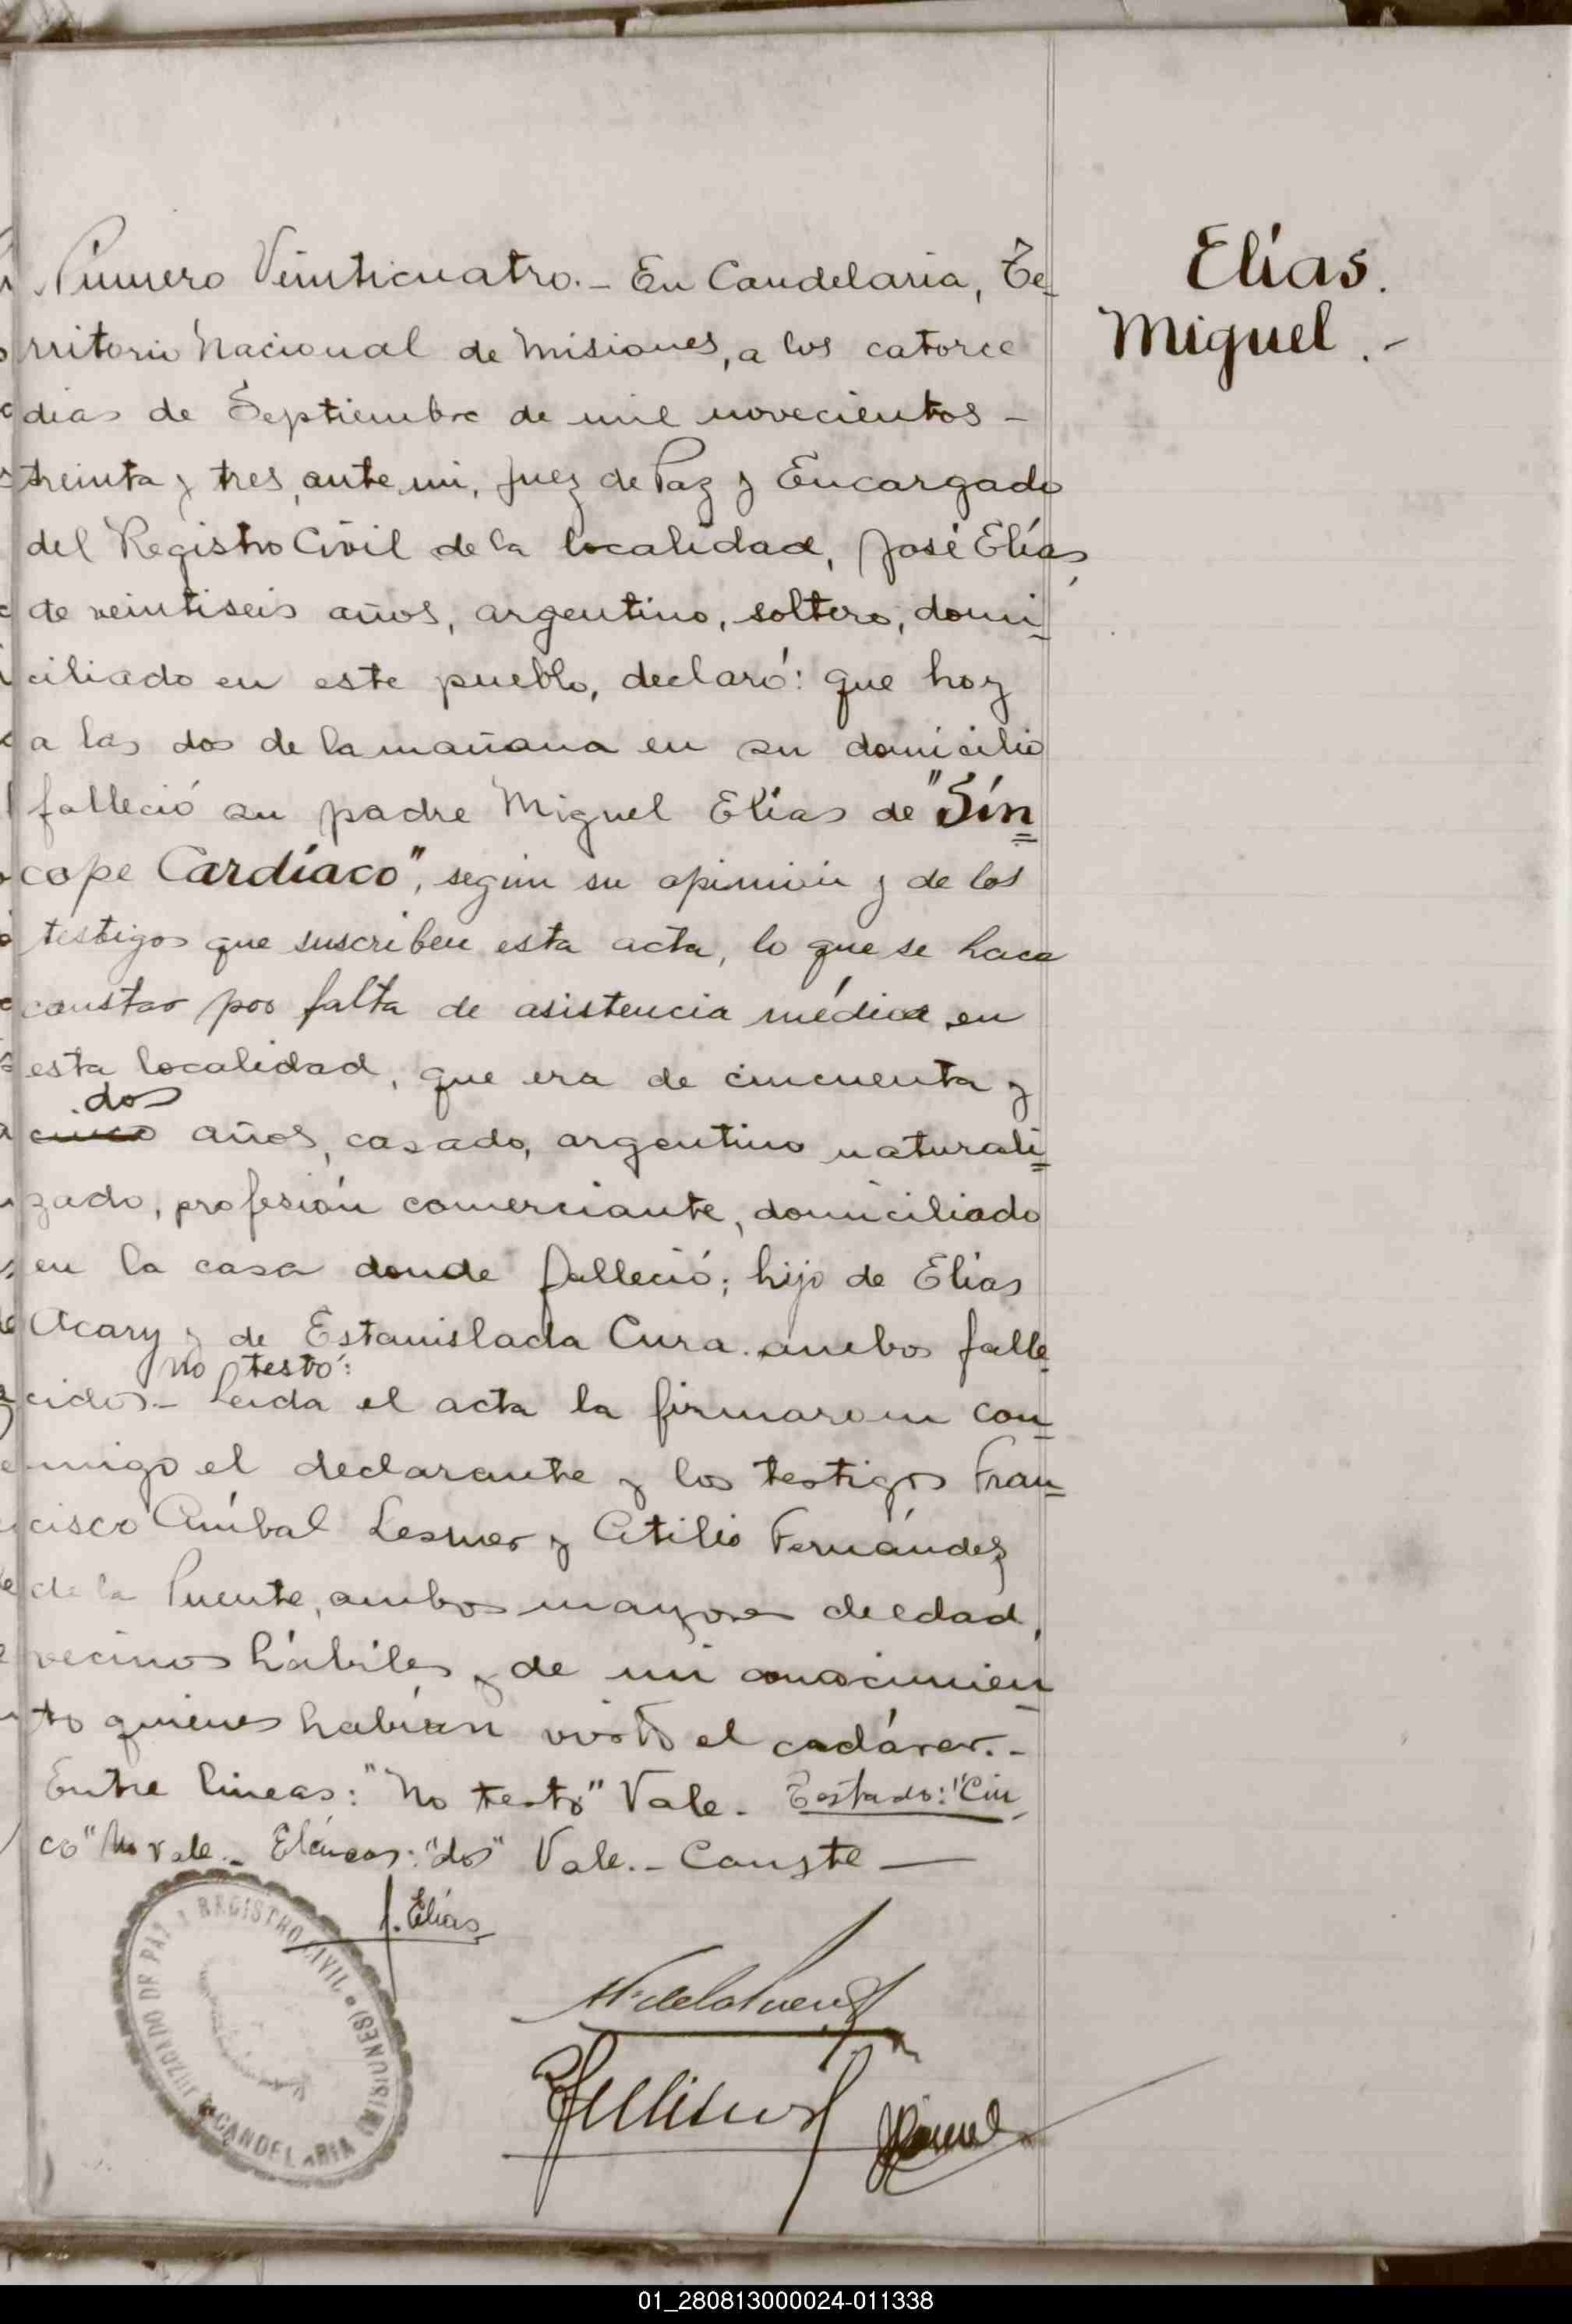 Número Veinticuatro.- En Candelaria, Te-
rritorio Nacional de Misiones, a los catorce
dias de Septiembre de mil novecientos -
treinta y tres, ante mi, Juez de Paz y Encargado
del Registro Civil de la localidad, José Elías,
de veintiseis años, argentino, soltero, domi-
ciliado en este pueblo, declaró: que hoy
a las dos de la mañana en su domicilio
falleció su padre Miguel Elías de "Sín=
cope Cardíaco", segun su opinión y de los
testigos que suscriben esta acta, lo que se hace
constar por falta de asistencia médica en
esta localidad, que era de cincuenta y
dos
cinco años, casado, argentino naturali=
zado, profesión comerciante, domiciliado
en la casa donde falleció; hijo de Elías
Acary y de Estanislada Cura. ambos falle-
no testó:
cidos.- Leida el acta la firmaron con=
migo el declarante y los testigos Fran=
cisco Aníbal Lesner y Atilio Fernández
de la Puente, ambos mayores de edad,
vecinos hábiles y de mi conocimien-
to quienes habían visto el cadáver.-
Entre lineas: "No testó" Vale. Testado: "Cin-
co" No vale.- E líneas: "dos" Vale.- Conste —
J. Elías
Elías.
Miguel.-
JUZGADO DE PAZ Y REGISTRO CIVIL
CANDELARIA (MISIONES)
01_280813000024-011338